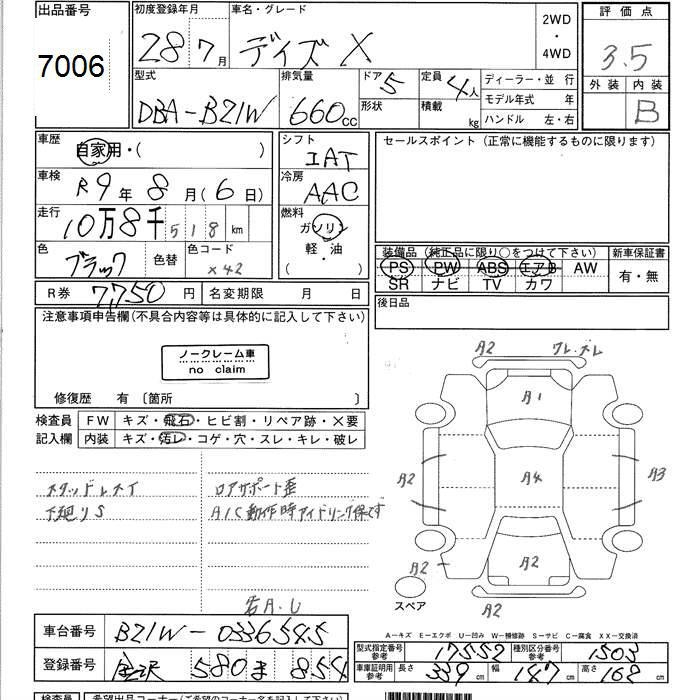 出品番号
7006
初度登録年月
28 7月
車名・グレード
デイズ X
2WD
・
4WD
評価点
3.5
外装 内装
B
型式
DBA-B21W
排気量
660cc
ドア 5
形状
定員 4人
積載 kg
ディーラー・並 行
モデル年式 年
ハンドル 左・右
車歴
自家用・( )
車検
R9年 8月(6日)
走行
10万8千518km
色
ブラック
色替
色コード
X42
シフト
IAT
冷房
AAC
燃料
ガソリン
軽・油
( )
セールスポイント (正常に機能するものに限ります)
装備品 (純正品に限り○をつけて下さい)
新車保証書
PS PW ABS エアB AW
有・無
SR ナビ TV カワ
後日品
R券 7,750円
名変期限 月 日
注意事項申告欄(不具合内容等は具体的に記入して下さい)
ノークレーム車
no claim
修復歴 有 〔箇所 〕
検査員
記入欄
FW キズ・飛石・ヒビ割・リペア跡・×要
内装 キズ・汚レ・コゲ・穴・スレ・キレ・破レ
スタッドレスタイ
下廻りS
ロアサポート歪
A/C動作時アイドリング
右A.U
A2
ワレ.ズレ
A1
A2
A4
A3
A2
A2
スペア
A－キズ E－エクボ U－凹み W－補修跡 S－サビ C－腐食 XX－交換済
車台番号
B21W-0336545
登録番号
金沢 580 ま 854
型式指定番号
参考
17552
種別区分番号
参考
1503
車庫証明用
参考
長さ 339
幅 147
高さ 162
検査員
希望出品コーナー(ご希望のコーナー名を記入して下